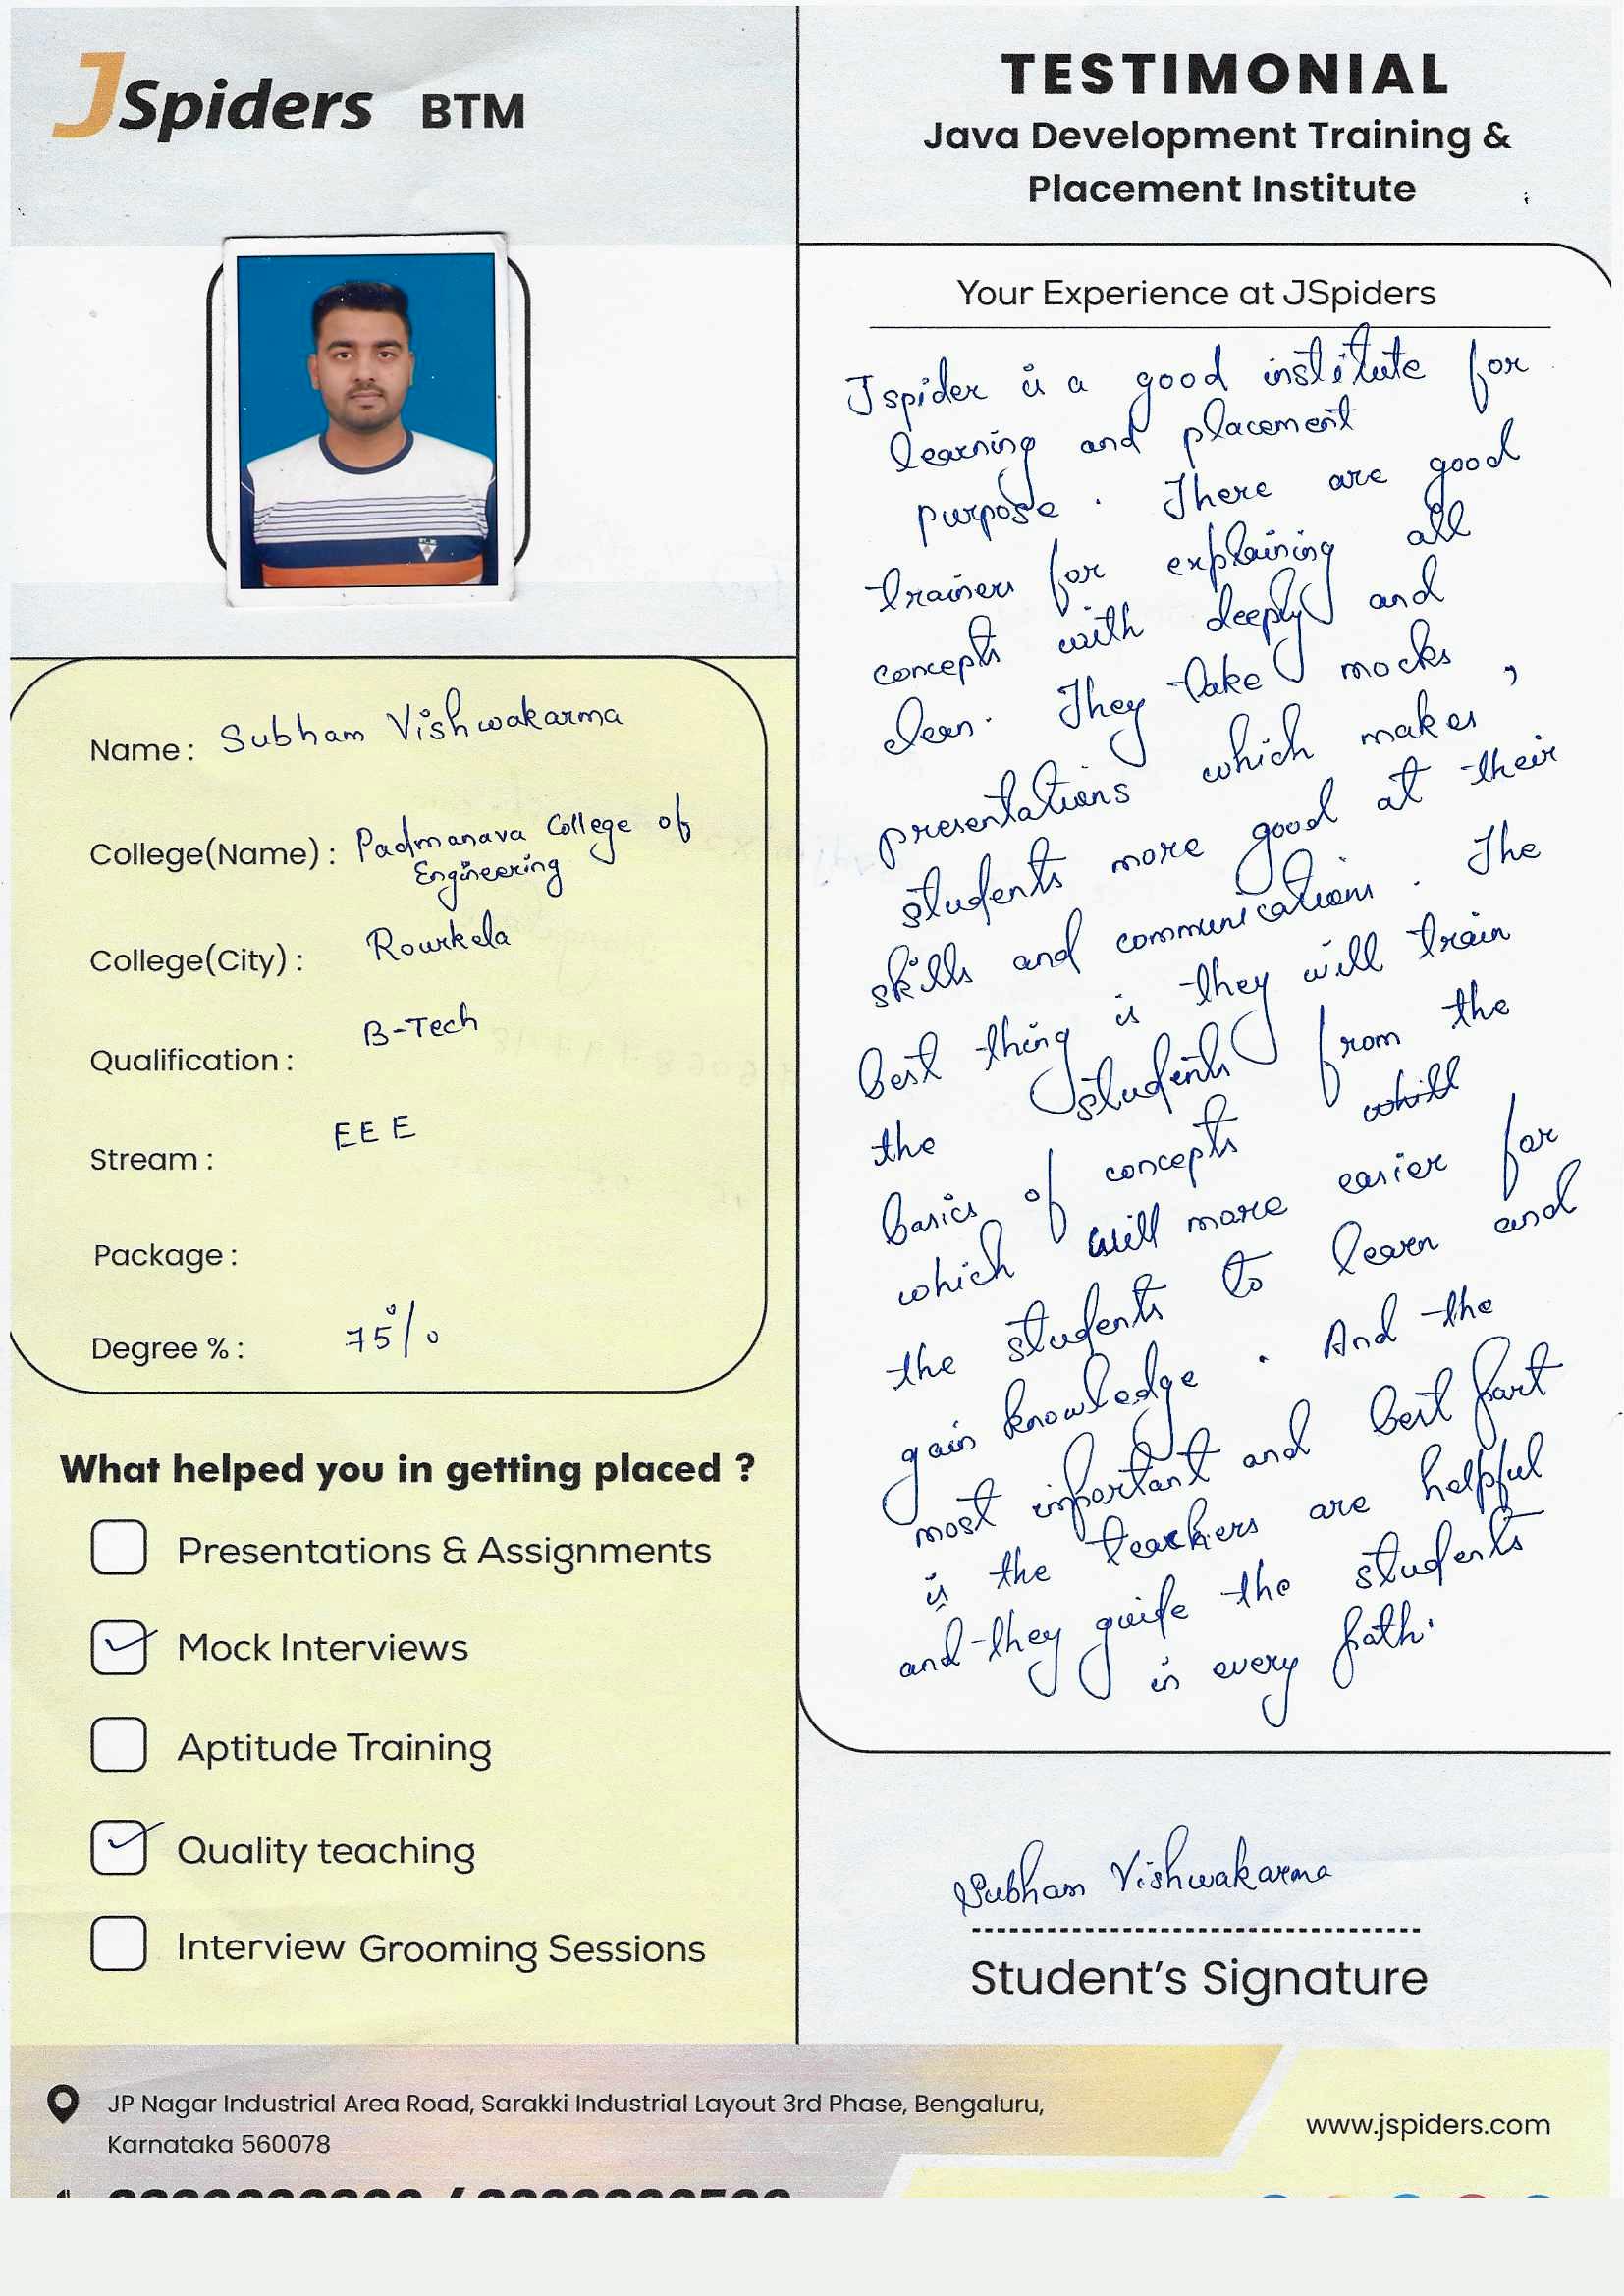 JSpiders BTM
TESTIMONIAL
Java Development Training &
Placement Institute
Name : Subham Vishwakarma
College(Name) : Padmanava College of
Engineering
College(City) : Rourkela
Qualification : B-Tech
Stream : EEE
Package :
Degree % : 75%
What helped you in getting placed ?
Presentations & Assignments
Mock Interviews
Aptitude Training
Quality teaching
Interview Grooming Sessions
Your Experience at JSpiders
Jspider is a good institute for
learning and placement
purpose . There are good
trainers for explaining all
concepts with deeply and
clean. They take mocks ,
presentations which makes
students more good at their
skills and communications . The
best thing is they will train
the students from the
basics of concepts whill
which will more easier for
the students to learn and
gain knowledge . And the
most important and best part
is the teachers are helpful
and they guide the students
in every path.
Subham Vishwakarma
Student's Signature
JP Nagar Industrial Area Road, Sarakki Industrial Layout 3rd Phase, Bengaluru,
Karnataka 560078
www.jspiders.com